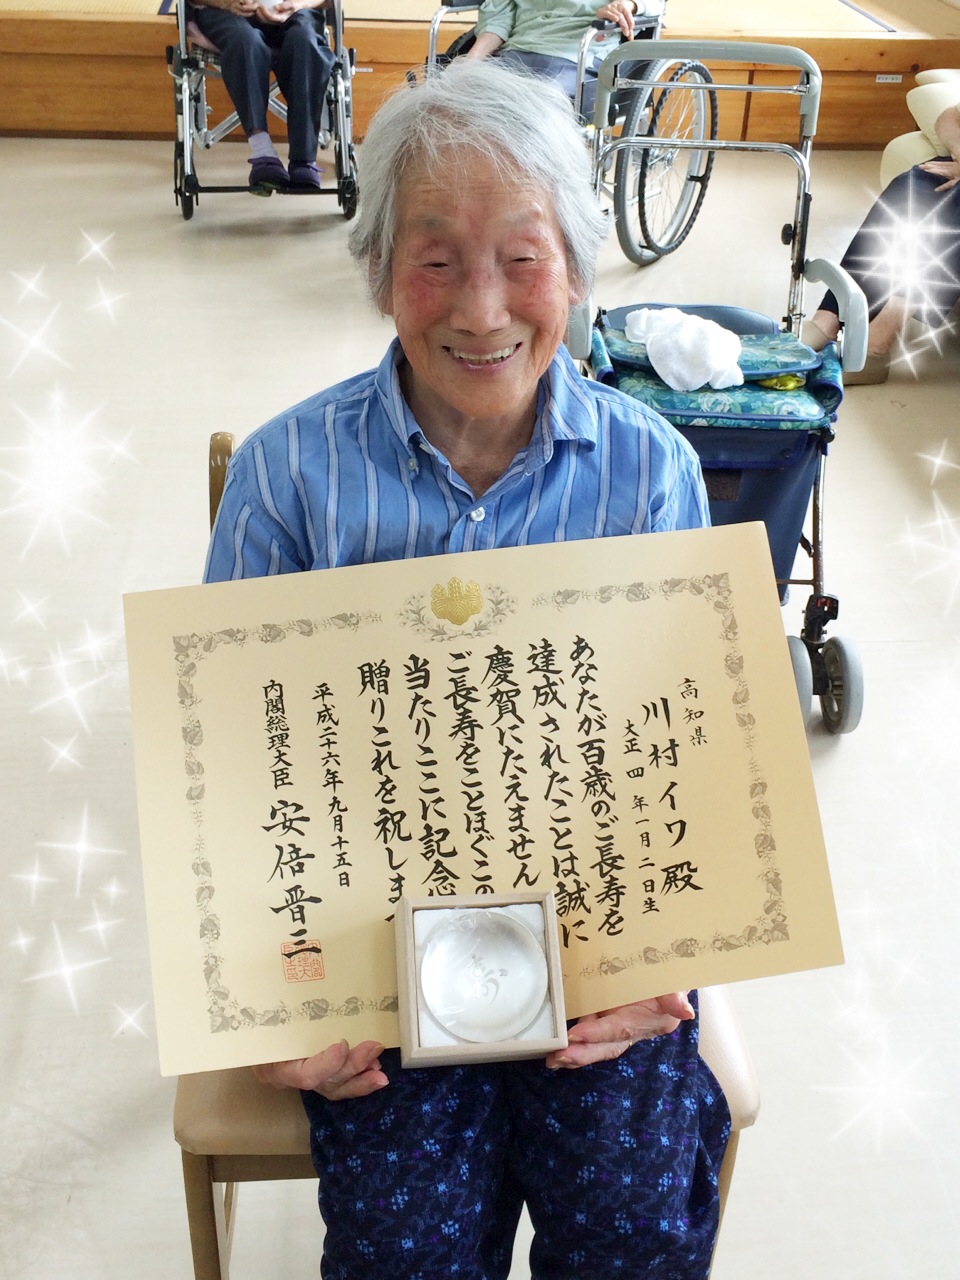 高知県
川村イワ殿
大正四年一月二日生
あなたが百歳のご長寿を
達成されたことは誠に
慶賀にたえません
ご長寿をことほぐこの
当たりここに記念
贈りこれを祝しま
平成二十六年九月十五日
内閣総理大臣 安倍晋三
寿